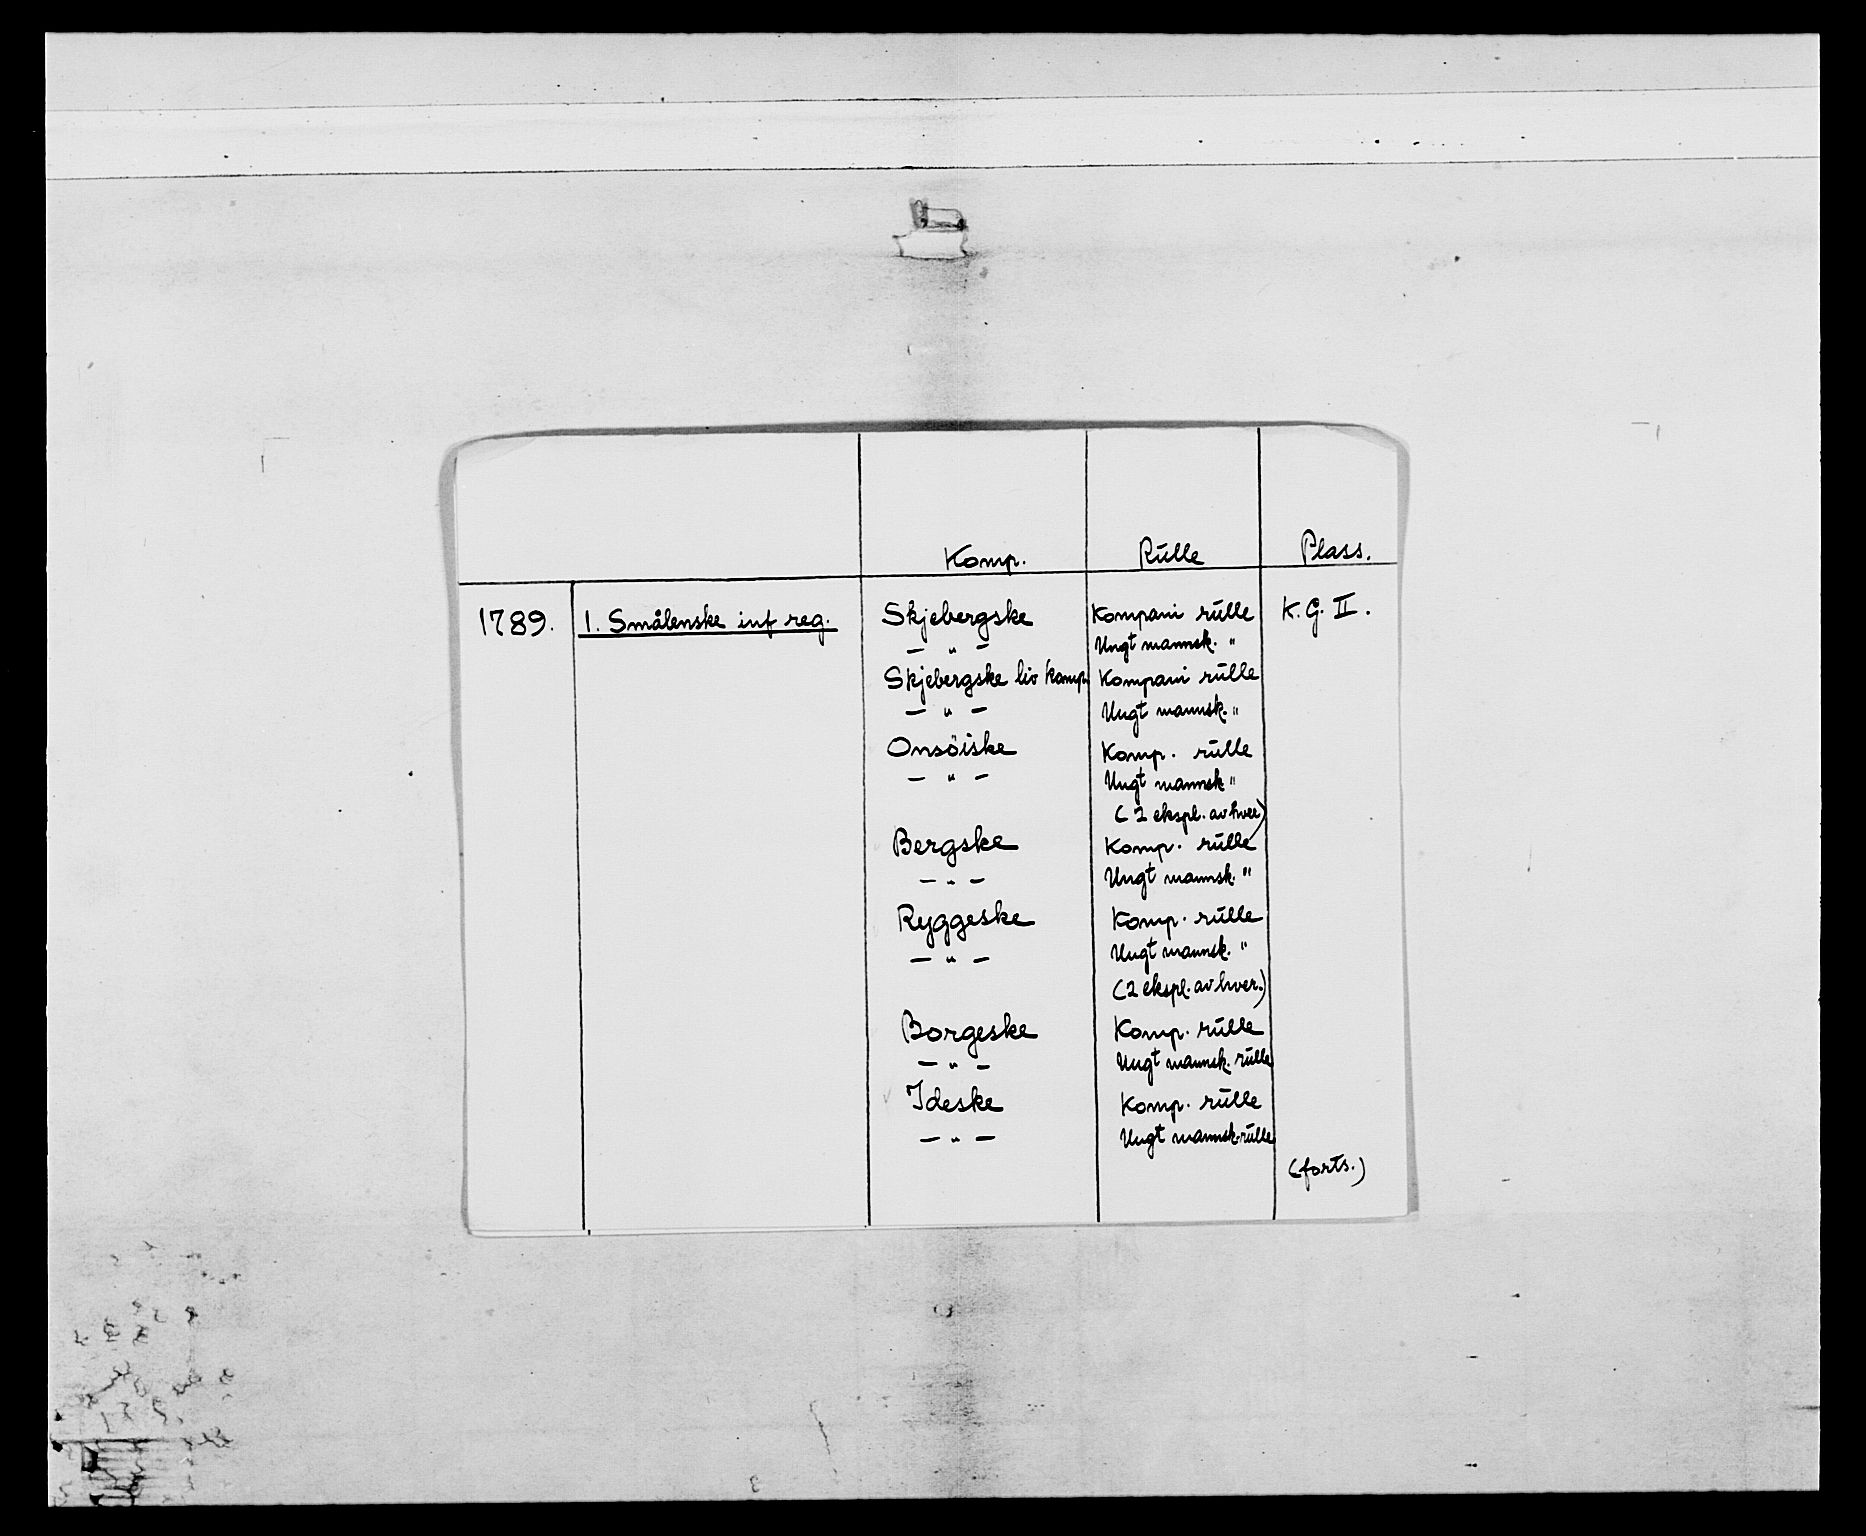 Komp. Rulle Plass.
1789. 1. Smålenske inf reg. Skjebergske Kompani rulle K. G. II.
— " — Ungt mannsk. "
Skjebergske liv komp. Kompani rulle
— " — Ungt mannsk. "
Onsöiske Komp. rulle
— " — Ungt mannsk "
(2 ekspl. av hver)
Bergske Komp. rulle
— " — Ungt mannsk. "
Ryggeske Komp. rulle
— " — Ungt mannsk. "
(2 ekspl. av hver.)
Borgeske Komp. rulle
— " — Ungt mannsk. rulle
Ideske Komp. rulle
— " — Ungt mannsk. rulle
(forts.)